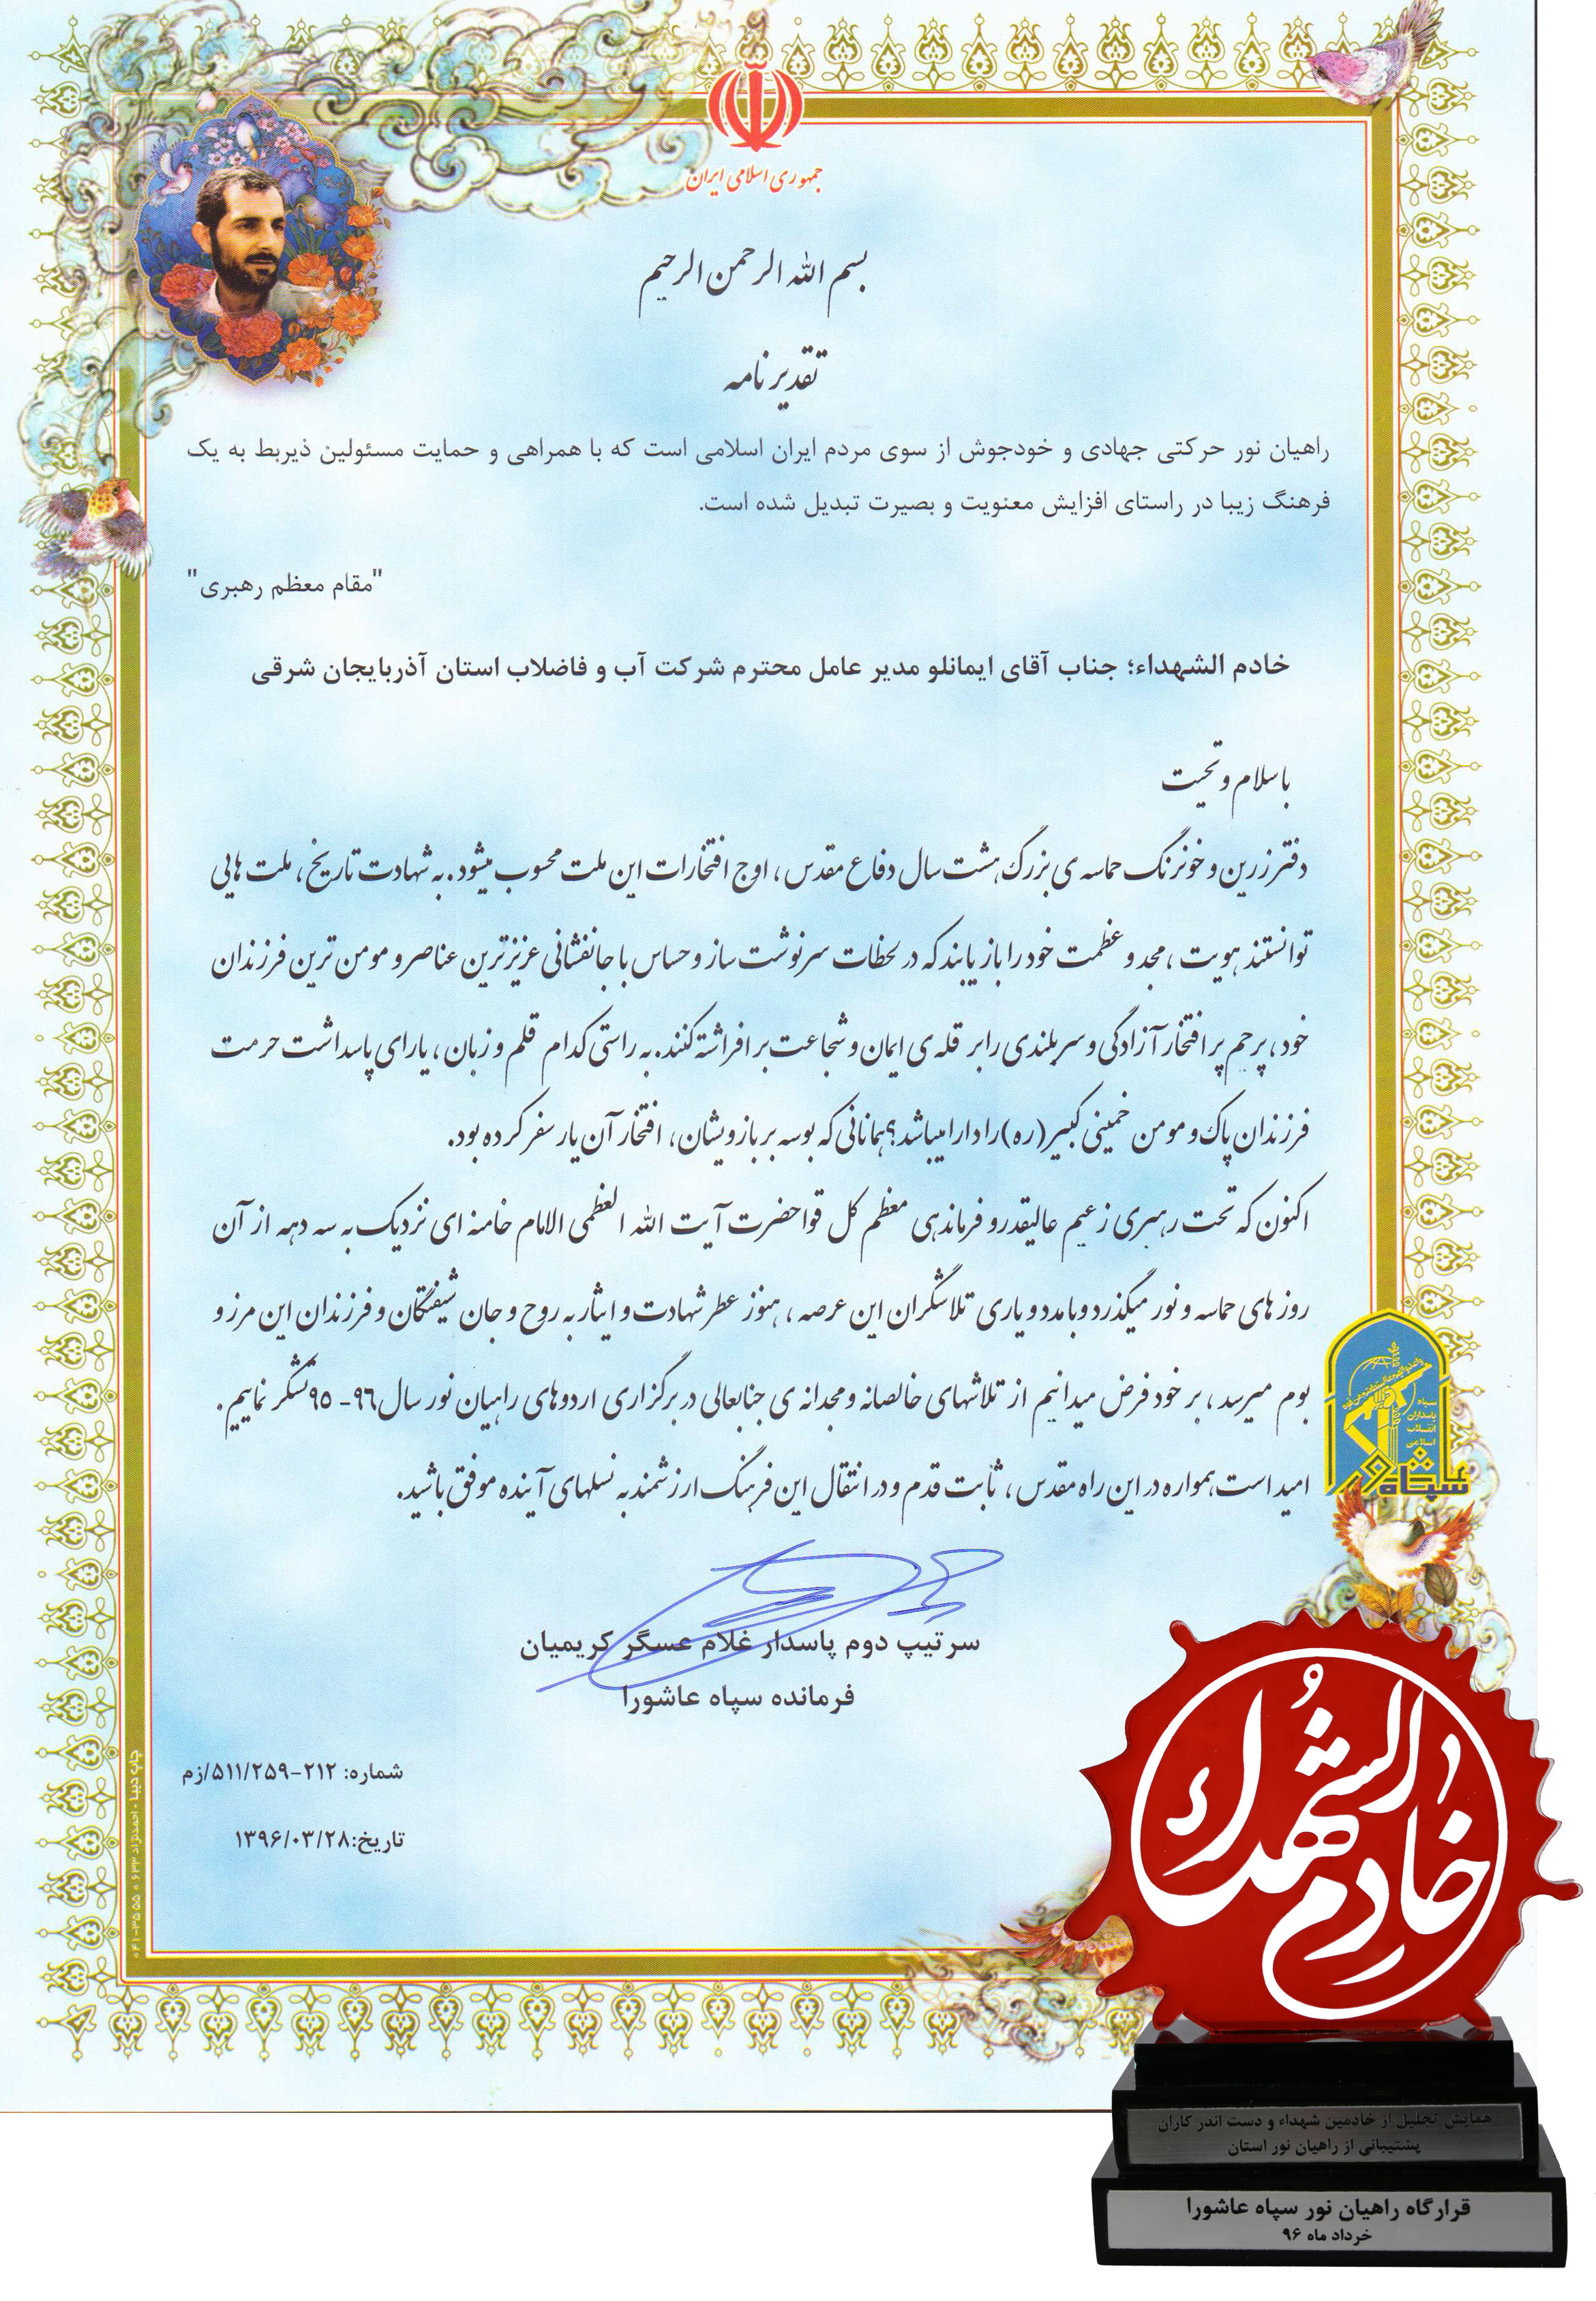 جمهوری اسلامی ایران
بسم الله الرحمن الرحیم
تقدیرنامه
راهیان نور حرکتی جهادی و خودجوش از سوی مردم ایران اسلامی است که با همراهی و حمایت مسئولین ذیربط به یک
فرهنگ زیبا در راستای افزایش معنویت و بصیرت تبدیل شده است.
"مقام معظم رهبری"
خادم الشهداء؛ جناب آقای ایمانلو مدیر عامل محترم شرکت آب و فاضلاب استان آذربایجان شرقی
با سلام و تحیت
دفتر زرین و خونرنگ حماسه ی بزرگ هشت سال دفاع مقدس، اوج افتخارات این ملت محسوب میشود. به شهادت تاریخ، ملت هایی
توانستند هویت، مجد و عظمت خود را باز یابند که در لحظات سرنوشت ساز و حساس با جانفشانی عزیزترین عناصر و مومن ترین فرزندان
خود، پرچم پر افتخار آزادگی و سربلندی را بر قله ی ایمان و شجاعت برافراشته کنند. به راستی کدام قلم و زبان، یارای پاسداشت حرمت
فرزندان پاک و مومن خمینی کبیر (ره) را دارا میباشد؟ همانانی که بوسه بر بازویشان، افتخار آن یار سفر کرده بود.
اکنون که تحت رهبری زعیم عالیقدر و فرماندهی معظم کل قوا حضرت آیت الله العظمی الامام خامنه ای نزدیک به سه دهه از آن
روزهای حماسه و نور میگذرد و با مدد و یاری تلاشگران این عرصه، هنوز عطر شهادت و ایثار به روح و جان شیفتگان و فرزندان این مرز و
بوم میرسد، بر خود فرض میدانیم از تلاشهای خالصانه و مجدانه ی جنابعالی در برگزاری اردوهای راهیان نور سال ۹۶-۹۵ تشکر نماییم.
امید است همواره در این راه مقدس، ثابت قدم و در انتقال این فرهنگ ارزشمند به نسلهای آینده موفق باشید.
سپاه
پاسداران
انقلاب
اسلامی
سپاه عاشورا
سرتیپ دوم پاسدار غلام عسگر کریمیان
فرمانده سپاه عاشورا
شماره: ۲۱۲-۵۱۱/۲۵۹/زم
تاریخ:۱۳۹۶/۰۳/۲۸
خادم الشهداء
همایش تجلیل از خادمین شهداء و دست اندر کاران
پشتیبانی از راهیان نور استان
قرارگاه راهیان نور سپاه عاشورا
خرداد ماه ۹۶